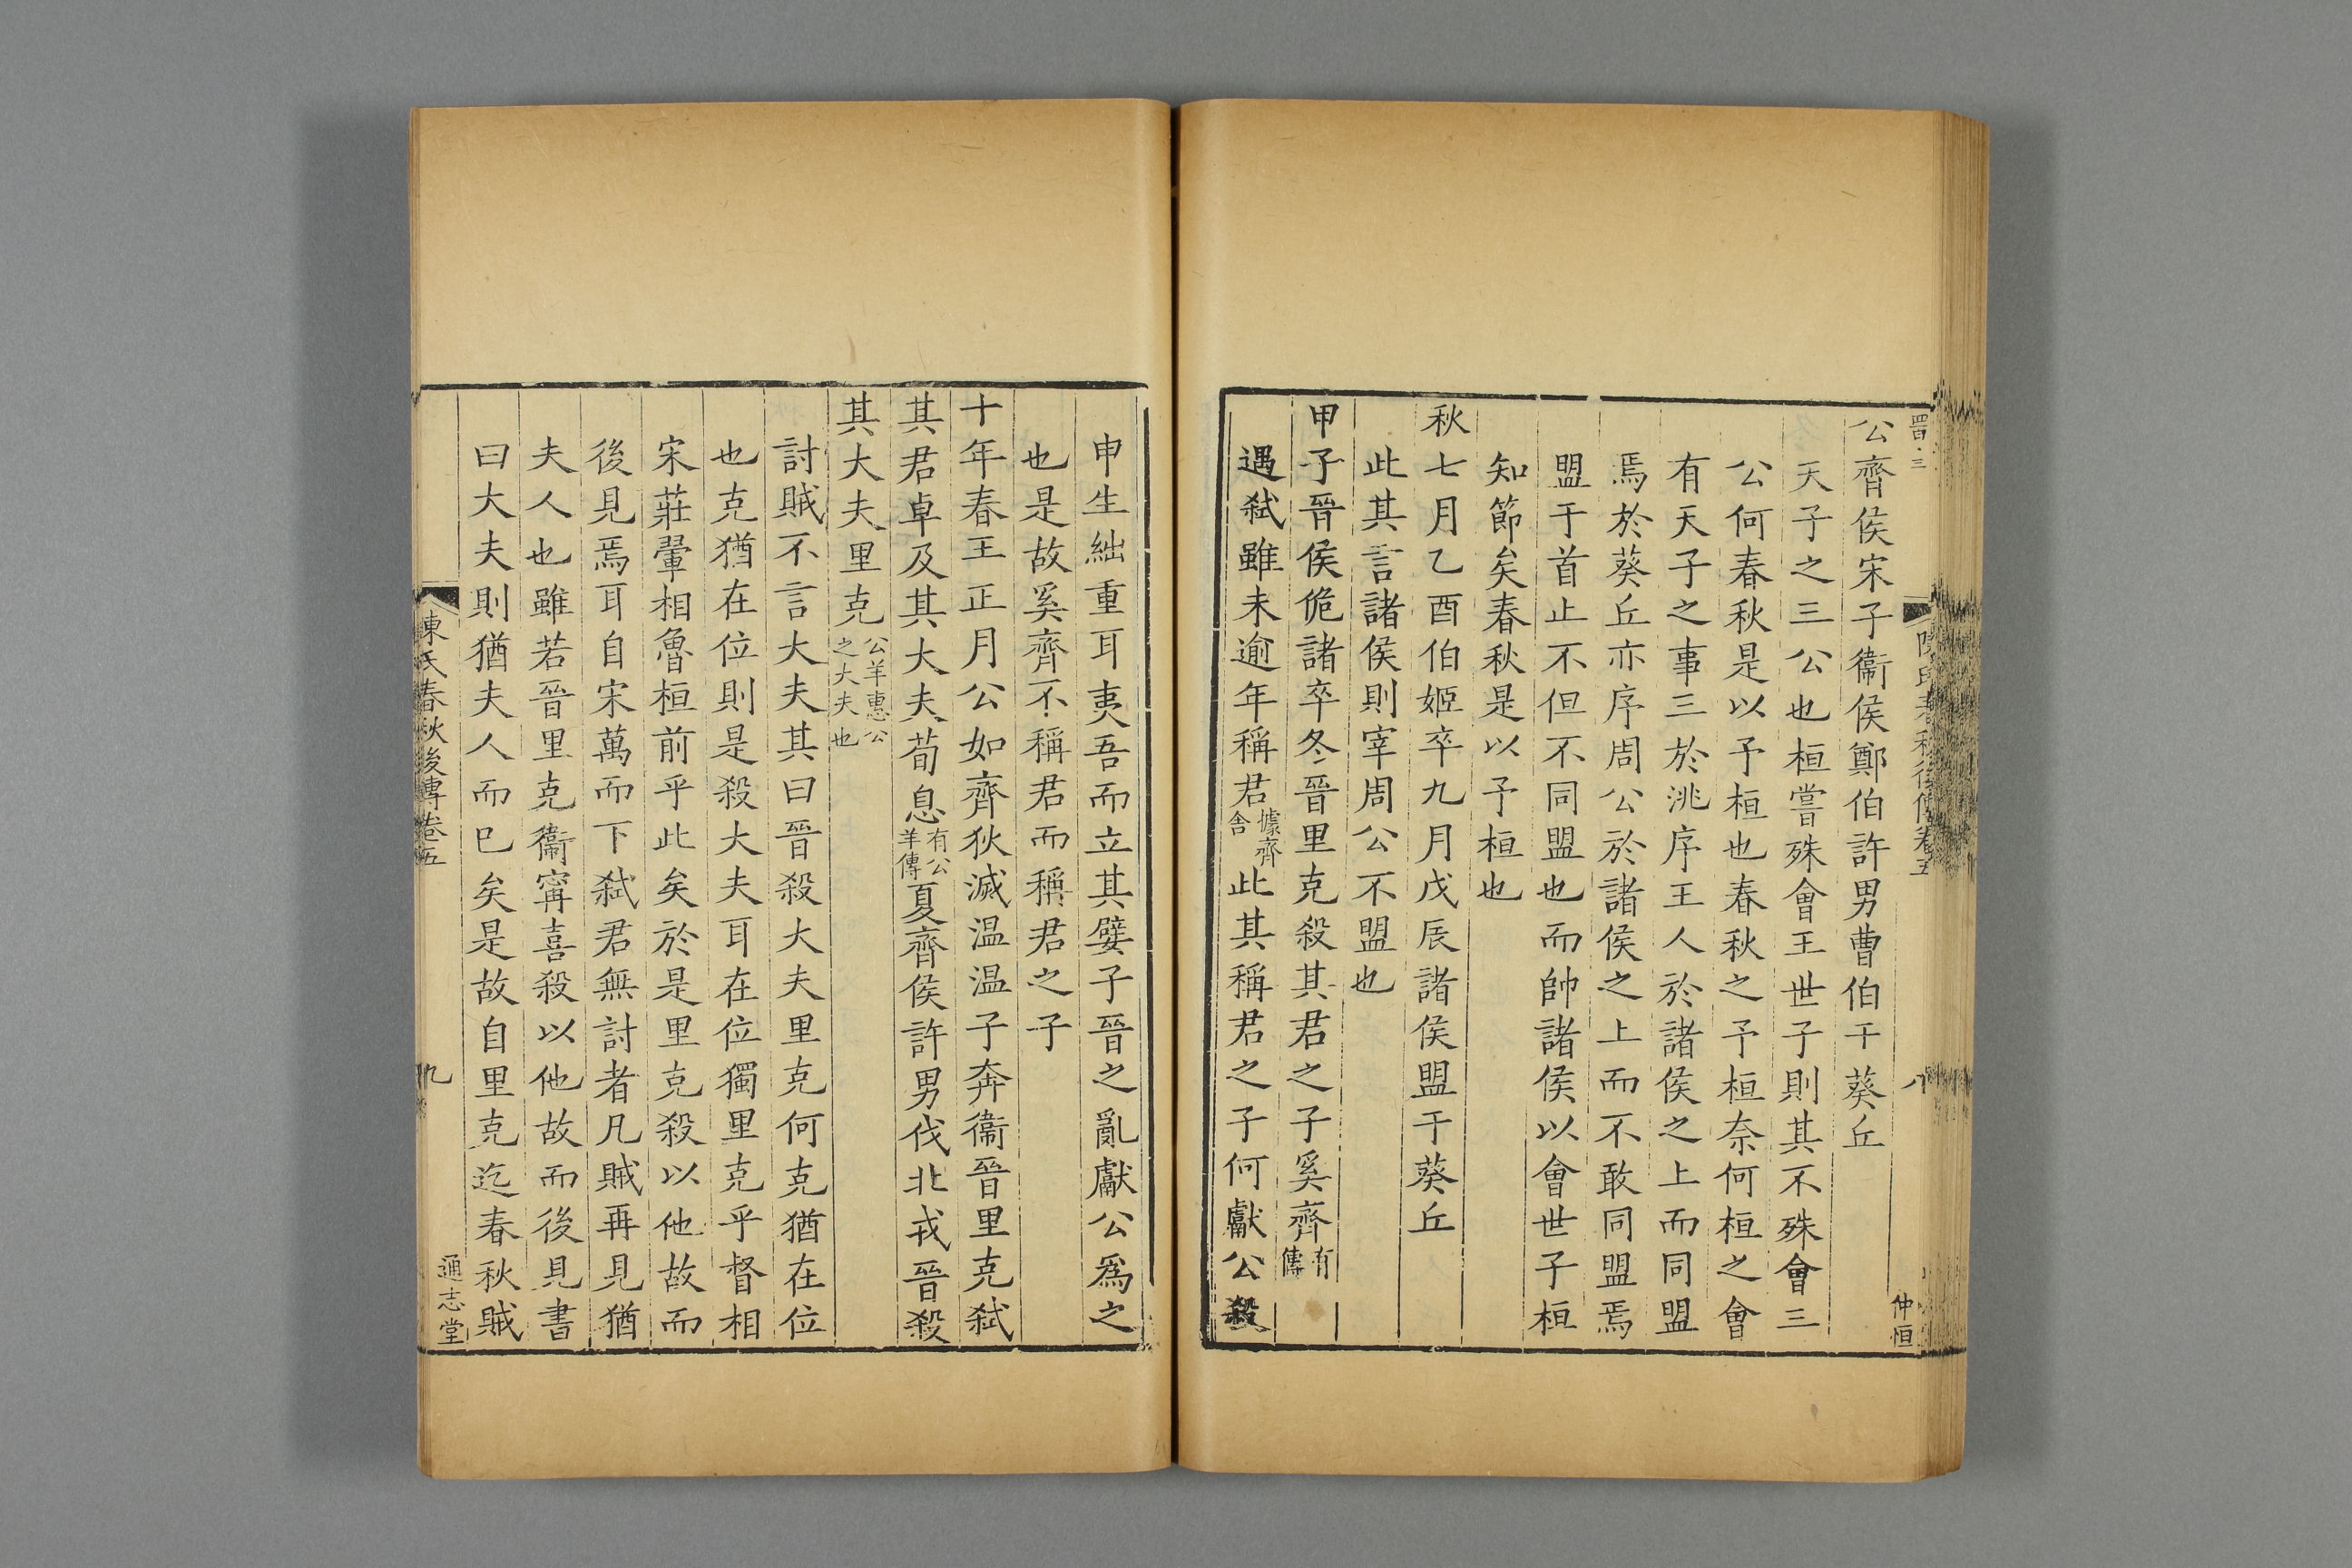 陳氏春秋後傳卷五
八
仲恒
公齊侯宋子衞侯鄭伯許男曹伯于葵丘
天子之三公也桓嘗殊會王世子則其不殊會三
公何春秋是以予桓也春秋之予桓奈何桓之會
有天子之事三於洮序王人於諸侯之上而同盟
焉於葵丘亦序周公於諸侯之上而不敢同盟焉
盟于首止不但不同盟也而帥諸侯以會世子桓
知節矣春秋是以予桓也
秋七月乙酉伯姬卒九月戊辰諸侯盟于葵丘
此其言諸侯則宰周公不盟也
甲子晉侯佹諸卒冬晉里克殺其君之子奚齊有傳
遇弑雖未逾年稱君據齊舍此其稱君之子何獻公殺
申生絀重耳夷吾而立其嬖子晉之亂獻公爲之
也是故奚齊不稱君而稱君之子
十年春王正月公如齊狄滅温温子奔衞晉里克弑
其君卓及其大夫荀息有公羊傳夏齊侯許男伐北戎晉殺
其大夫里克公羊惠公之大夫也
討賊不言大夫其曰晉殺大夫里克何克猶在位
也克猶在位則是殺大夫耳在位獨里克乎督相
宋莊翬相魯桓前乎此矣於是里克殺以他故而
後見焉耳自宋萬而下弑君無討者凡賊再見猶
夫人也雖若晉里克衞甯喜殺以他故而後見書
曰大夫則猶夫人而巳矣是故自里克迄春秋賊
陳氏春秋後傳卷五
九
通志堂